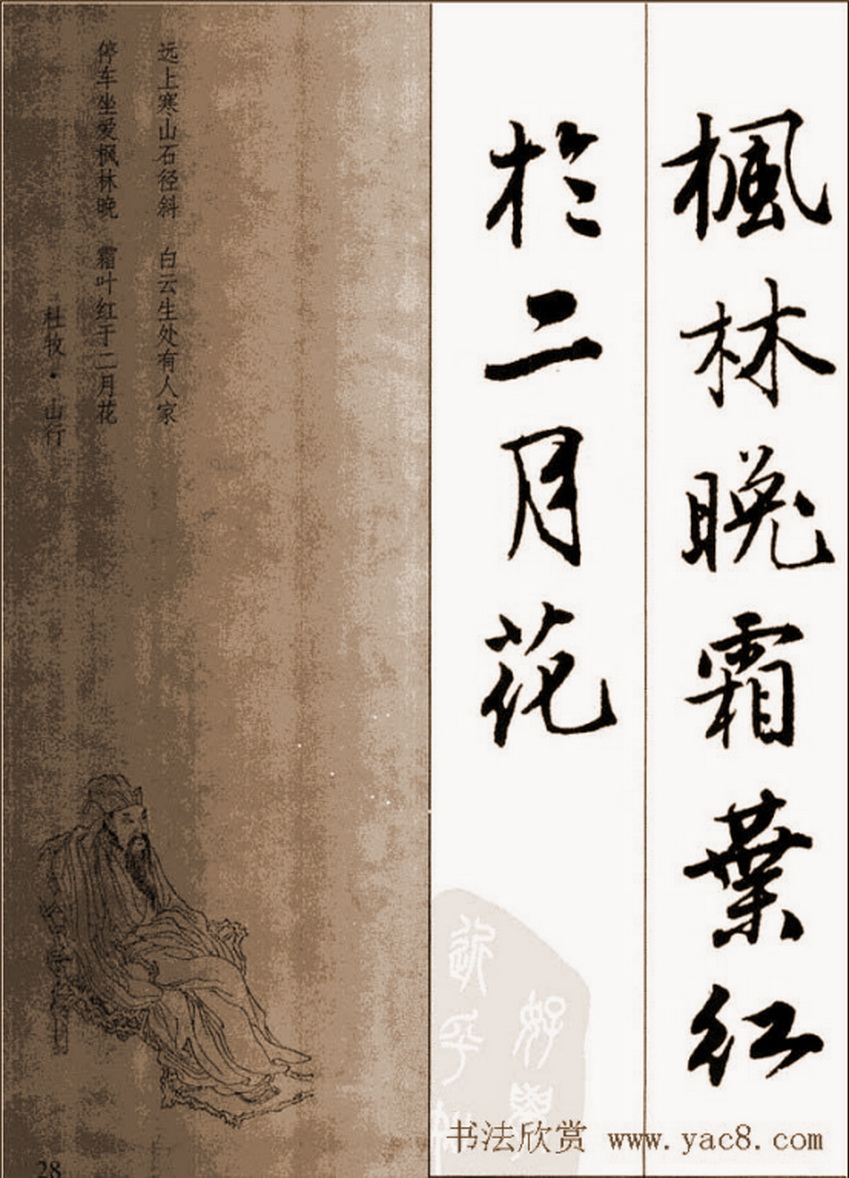 楓林晚霜葉紅
於二月花
远上寒山石径斜　白云生处有人家
停车坐爱枫林晚　霜叶红于二月花
杜牧·山行
好學
近乎
书法欣赏 www.yac8.com
28